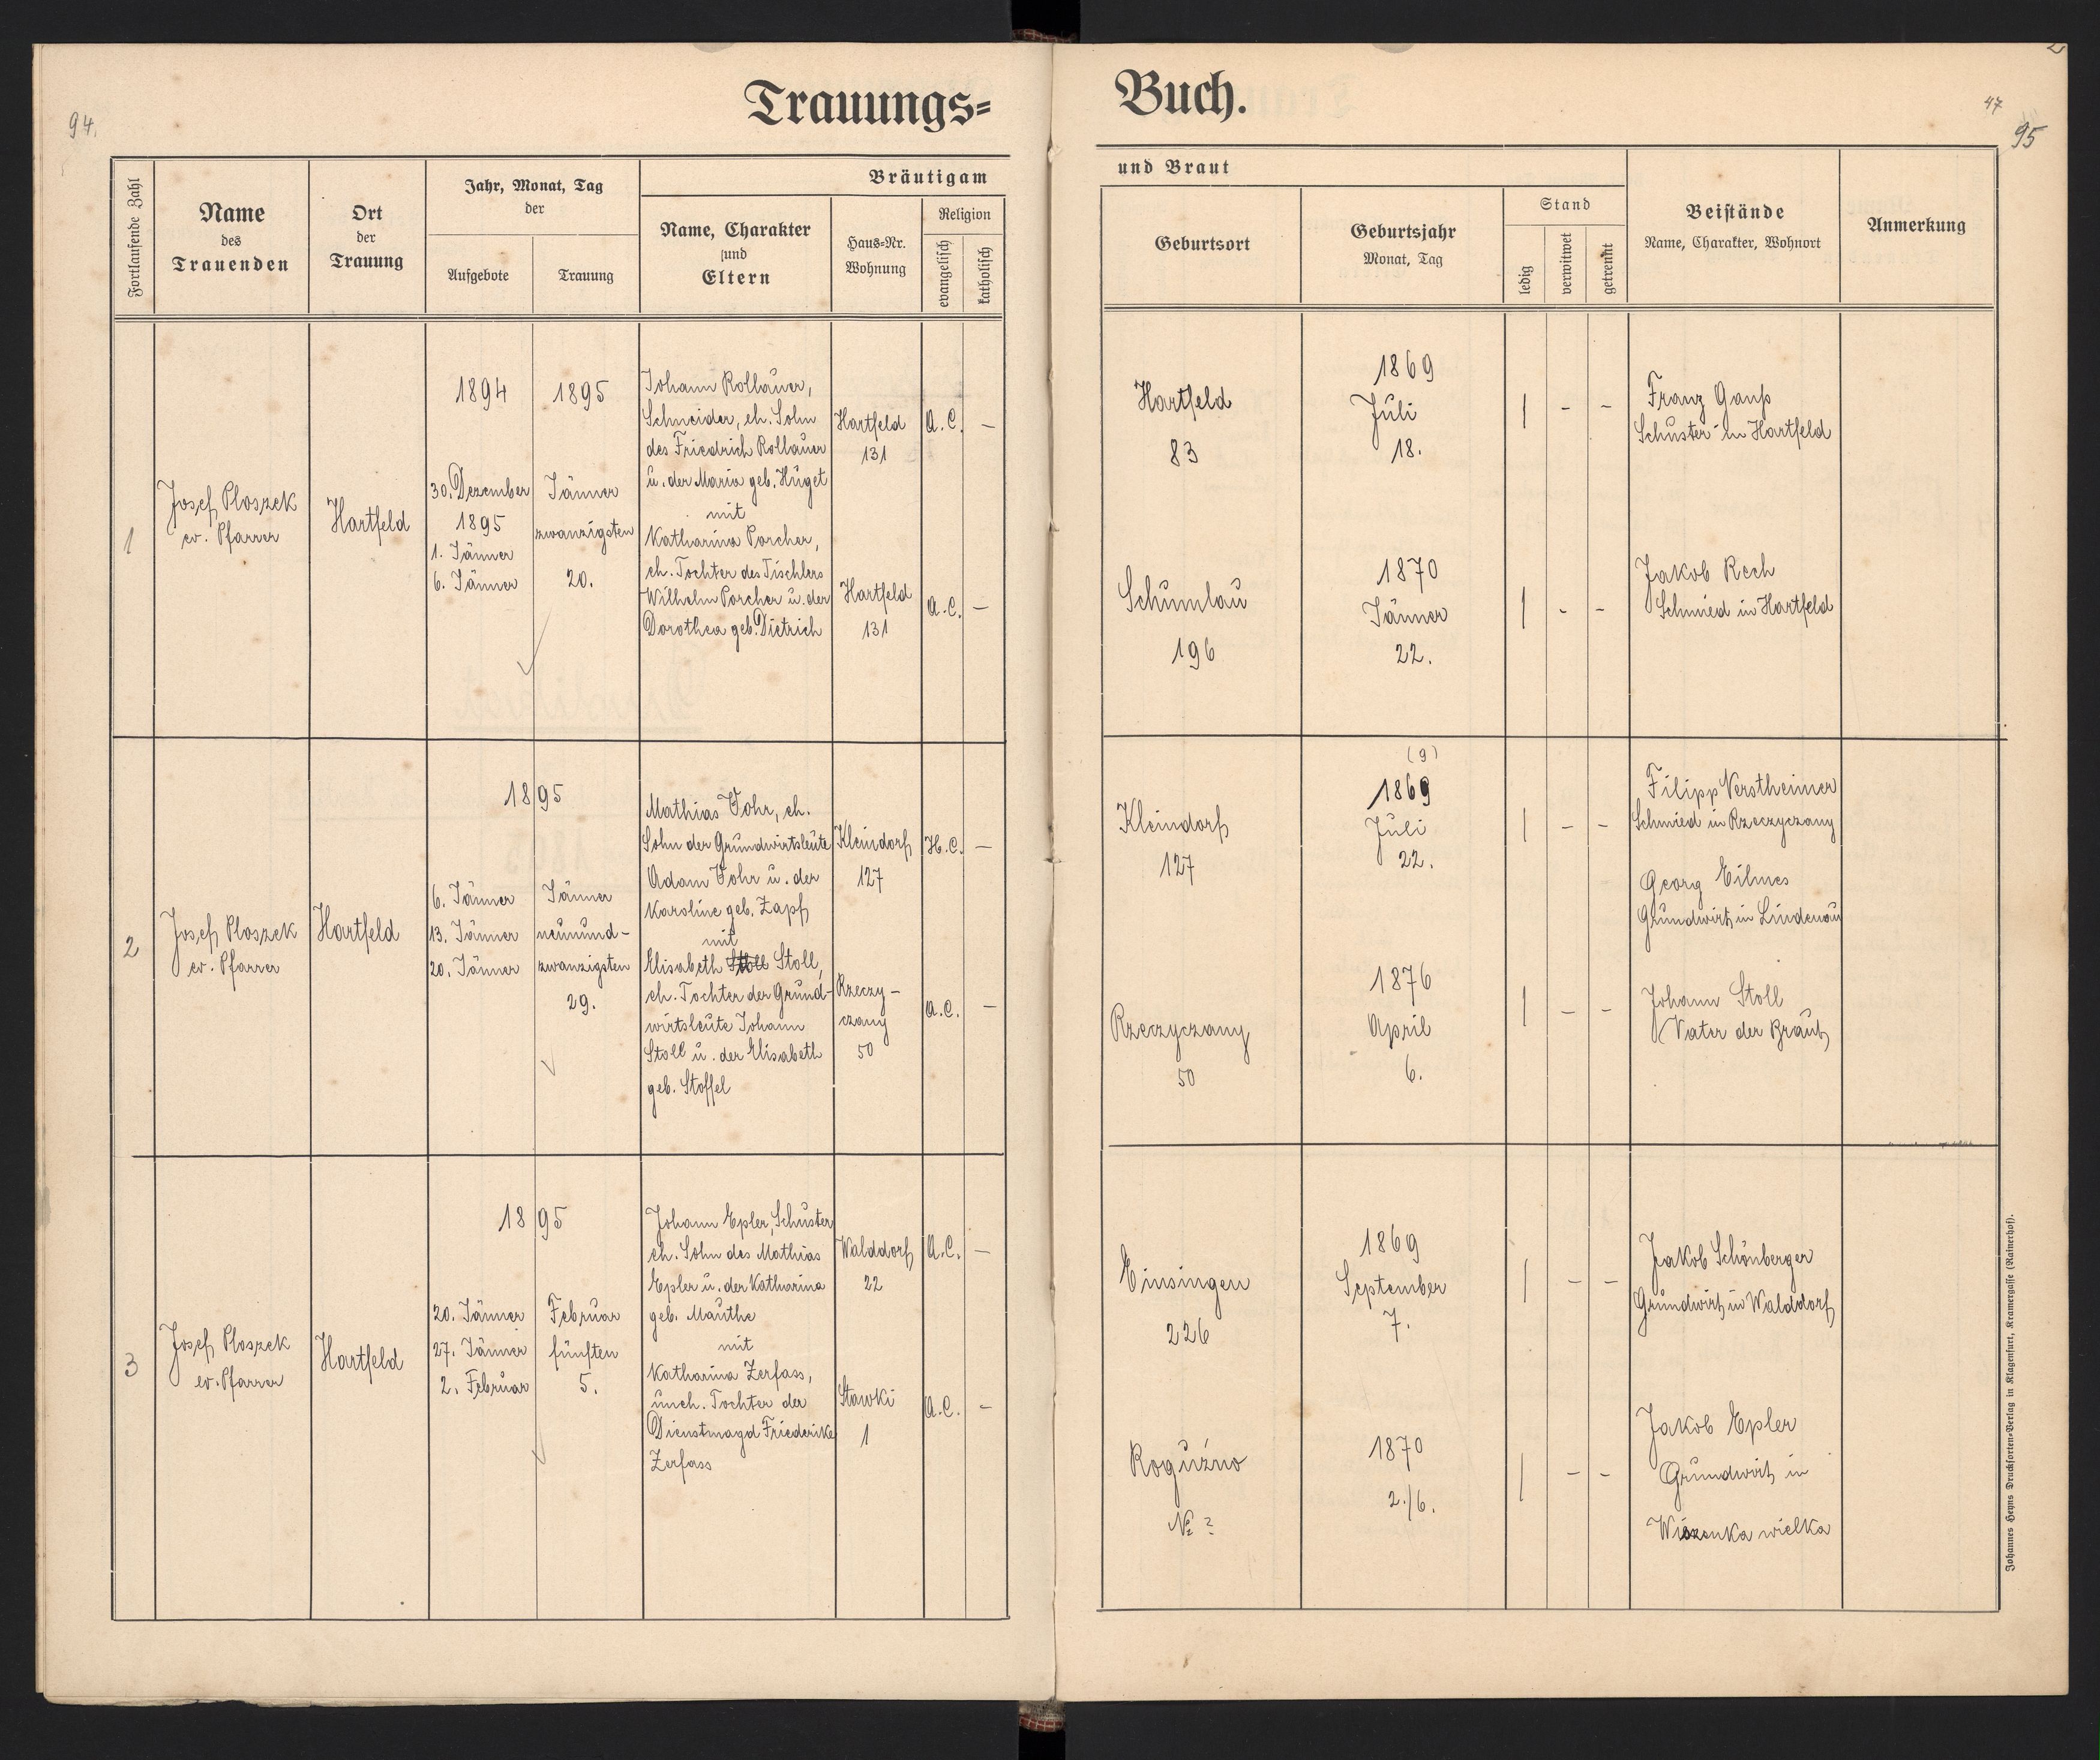 94.
Trauungs=
Fortlaufende Zahl
Name
des
Trauenden
Ort
der
Trauung
Jahr, Monat, Tag
der
Aufgebote
Trauung
Bräutigam
Name, Charakter
und
Eltern
Haus=Nr.
Wohnung
Religion
evangelisch
katholisch
1
Josef Ploszek
ev. Pfarrer
Hartfeld
1894
30. Dezember
1895
1. Jänner
6. Jänner
1895
Jänner
zwanzigsten
20.
Johann Rollauer,
Schneider, eh. Sohn
des Friedrich Rollauer
u. der Maria geb. Huget
mit
Katharina Porcher,
eh. Tochter des Tischlers
Wilhelm Porcher u. der
Dorothea geb. Dietrich
Hartfeld
131
Hartfeld
131
A.C. –
A.C. –
2
Josef Ploszek
ev. Pfarrer
Hartfeld
1895
6. Jänner
13. Jänner
20. Jänner
Jänner
neunund-
zwanzigsten
29.
Mathias Fohr, eh.
Sohn der Grundwirtsleute
Adam Fohr u. der
Karoline geb. Zapf
mit
Elisabeth Stoll Stoll,
eh. Tochter der Grund-
wirtsleute Johann
Stoll u. der Elisabeth
geb. Stoffel
Kleindorf
127
Rzeczy-
czany
50
H.C. –
A.C. –
3
Josef Ploszek
ev. Pfarrer
Hartfeld
1895
20. Jänner
27. Jänner
2. Februar
Februar
fünften
5.
Johann Epler, Schuster
eh. Sohn des Mathias
Epler u. der Katharina
geb. Mauthe
mit
Katharina Zerfass,
uneh. Tochter der
Dienstmagd Friederike
Zerfass
Walddorf
22
Stawki
1
A.C. –
A.C. –
2
Buch.
47
95
und Braut
Geburtsort
Geburtsjahr
Monat, Tag
Stand
ledig
verwitwet
getrennt
Beistände
Name, Charakter, Wohnort
Anmerkung
Hartfeld
83
1869
Juli
18.
| - -
Franz Ganß
Schuster in Hartfeld
Schumlau
196
1870
Jänner
22.
| - -
Jakob Rech
Schmied in Hartfeld
Kleindorf
127
(9)
1869
Juli
22.
| - -
Filipp Verstheimer
Schmied in Rzeczyczany
Georg Eilmes
Grundwirt in Lindenau
Rzeczyczany
50
1876
April
6.
| - -
Johann Stoll
Vater der Braut
Einsingen
226
1869
September
7.
| - -
Jakob Schönberger
Grundwirt in Walddorf
Roguźno
№ ?
1870
2./6.
| - -
Jakob Epler
Grundwirt in
Wiszenka wielka
Johannes Heyns Drucksorten=Verlag in Klagenfurt, Kramergasse (Rainerhof).